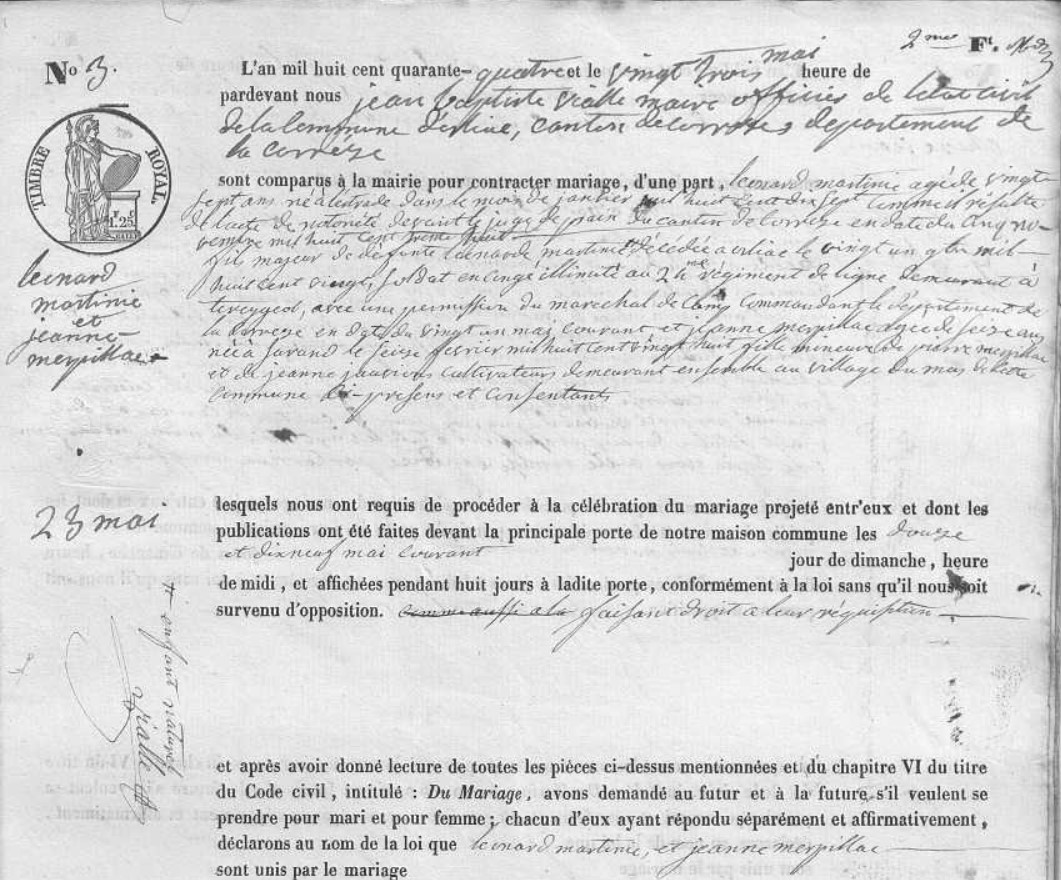 No 3.
2me Ft.
L'an mil huit cent quarante-quatre et le vingt trois mai heure de
pardevant nous jean baptiste vialle maire officiés de letat civil
de la Commune canton de Correze departement de
la Correze
TIMBRE ROYAL
1.25
sont comparus à la mairie pour contracter mariage, d'une part, leonard martinie agé de vingt
sept ans né a dans le mois de janvier mil huit Cent dix sept Comme il resulte
de lacte de notoriété devant le juge de paix du canton de Correze en date du Cinq no-
vembre mil huit Cent trente huit
fils majeur de defunte martinie décédée a le vingt un mil
huit cent soldat en Congé illimité au regiment de ligne demeurant à
avec une permission du marechal de Camp Commandant le departement de
la Correze en date du vingt un mai Courant et jeanne merpillac agée de seize ans
née à le seize fevrier mil huit Cent vingt huit fille mineure de pierre merpillac
et de jeanne Cultivateurs demeurant ensemble au village du mas de cette
Commune presens et Consentants
leonard
martinie
et
jeanne
merpillac
23 mai
lesquels nous ont requis de procéder à la célébration du mariage projeté entr'eux et dont les
publications ont été faites devant la principale porte de notre maison commune les douze
et dixneuf mai Courant jour de dimanche, heure
de midi, et affichées pendant huit jours à ladite porte, conformément à la loi sans qu'il nous soit
survenu d'opposition. Comme aussi a la faisant droit a leur réquisition
enfant naturel
vialle
et après avoir donné lecture de toutes les pièces ci-dessus mentionnées et du chapitre VI du titre
du Code civil, intitulé : Du Mariage, avons demandé au futur et à la future s'il veulent se
prendre pour mari et pour femme ; chacun d'eux ayant répondu séparément et affirmativement,
déclarons au nom de la loi que leonard martinie, et jeanne merpillac
sont unis par le mariage